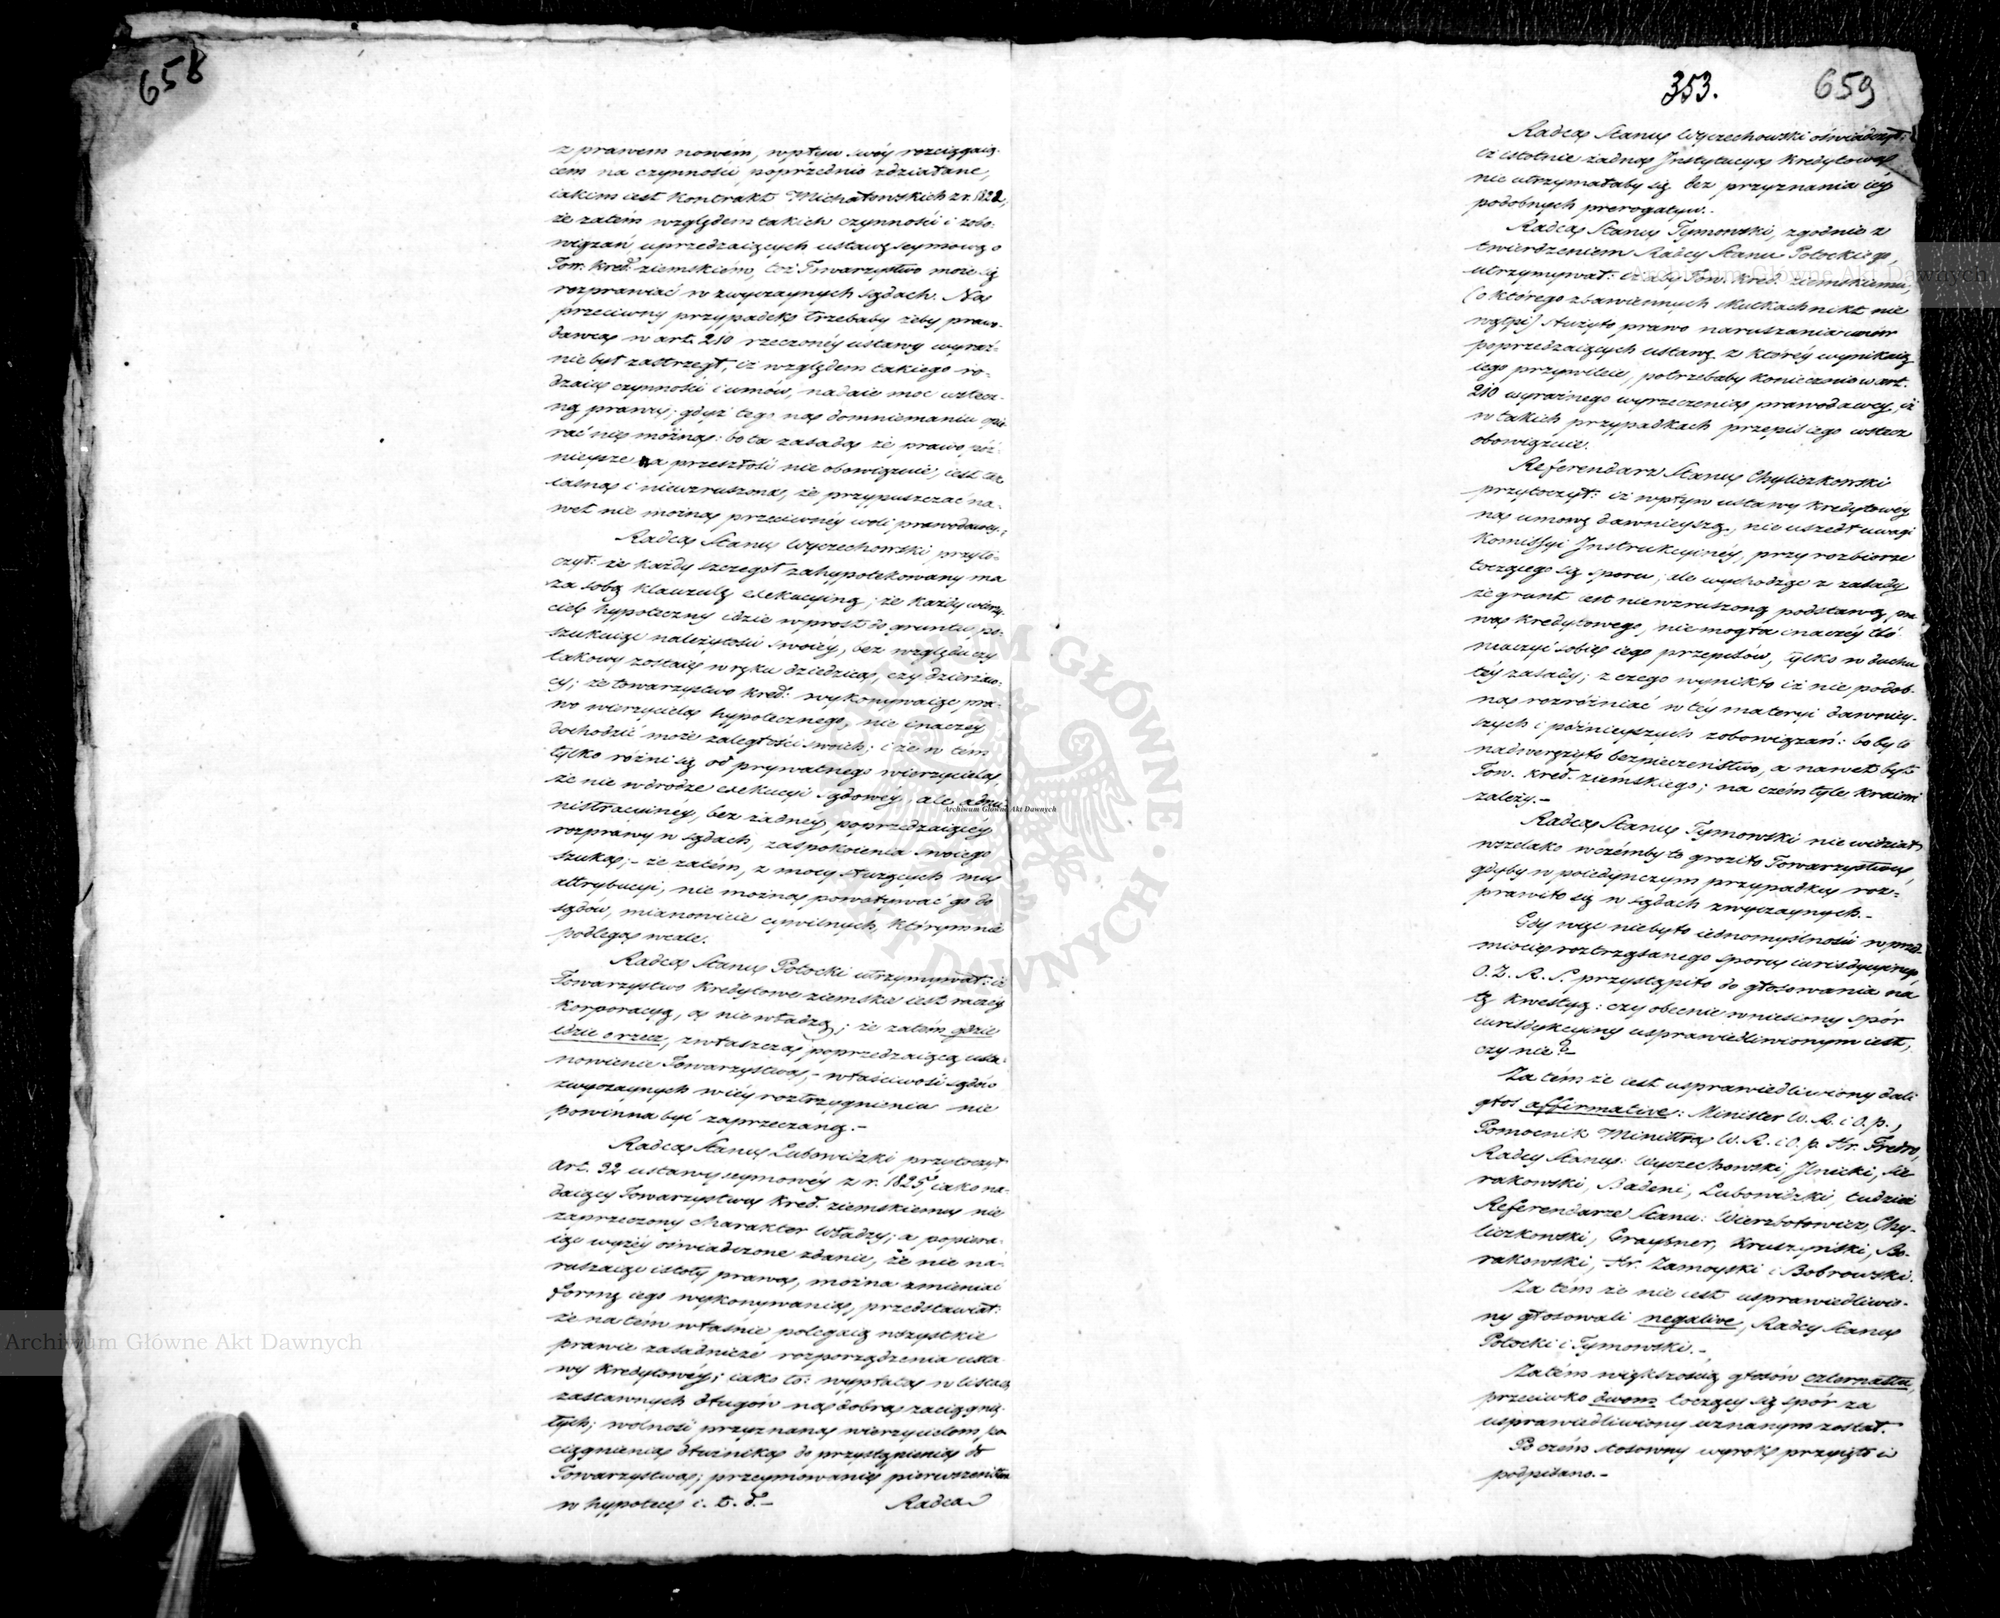 658
z prawem nowém, wpływ swóy rozciągaią-
cém na czynności poprzednio zdziałane,
iakim iest Kontrakt Michałowskich z r. 1822,
że zatém względem takich czynności i zobo-
wiązań uprzedzaiących ustawę seymową o
Tow. Kred. ziemskiém, toż Towarzystwo może się
rozprawiać w zwyczaynych sądach. Na
przeciwny przypadek trzebaby żeby prawo-
dawca w art. 210 rzeczonéy ustawy wyraź-
nie był zastrzegł, iż względem takiego ro-
dzaiu czynności i umów, nadaie moc wstecz-
ną prawu; gdyż tego na domniemaniu opie-
rać nie można: bo ta zasada że prawo póź-
nieysze na przeszłość nie obowiązuie, iest tak
iasna i niewzruszona, że przypuszczać na-
wet nie można przeciwnéy woli prawodawcy.-
Radca Stanu Wyczechowski przyto-
czył: że każdy szczegół zahypotekowany ma
za sobą klauzulę exekucyiną; że każdy wierzy-
ciel hypoteczny idzie wprost do gruntu po-
szukuiąc należytości swoiéy, bez względu czy
takowy zostaie w ręku dziedzica, czy dzierżaw-
cy; że towarzystwo kred: wykonywaiąc pra-
wo wierzyciela hypotecznego, nie inaczéy
dochodzić może zaległości swoich; i że w tém
tylko różni się od prywatnego wierzyciela
że nie w drodze exekucyi sądowéy, ale admi-
nistracyinéy, bez żadnéy poprzedzaiącéy
rozprawy w sądach, zaspokoienia swoiego
szuka; - że zatém, z mocy służących mu
attrybucyi, nie można powoływać go do
sądów, mianowicie cywilnych, którym nie
podlega wcale.
Radca Stanu Potocki utrzymywał: iż
Towarzystwo Kredytowe ziemskie iest raczéy
Korporacyą, a nie władzą; że zatém gdzie
idzie o rzecz, zwłaszcza poprzedzaiącą usta-
nowienie Towarzystwa, - właściwość sądów
zwyczaynych w iéy roztrzygnieniu nie
powinna być zaprzeczaną. -
Radca Stanu Lubowidzki przytoczył
Art. 32 ustawy seymowéy z r. 1825, iako na-
daiący Towarzystwu Kred. ziemskiemu nie
zaprzeczony charakter Władzy; a popiera-
iąc wyżéy oświadczone zdanie, że nie na-
ruszaiąc istoty prawa, można zmieniać
formę iego wykonywania, przedstawiał:
że na tém właśnie polegaią wszystkie
prawie zasadnicze rozporządzenia usta-
wy Kredytowéy; iako to: wypłata w listach
zastawnych długów na dobra zaciągnię-
tych; wolność przyznana wierzycielom po-
ciągnienia dłużnika do przystąpienia do
Towarzystwa; przeymowanie pierwszeństwa
w hypotece i. t. d. - Radca
353. 659
Radca Stanu Wyczechowski oświadczył:
iż istotnie żadna Instytucya Kredytowa
nie utrzymałaby się bez przyznania iéy
podobnych prerogatyw. -
Radca Stanu Tymowski, zgodnie z
twierdzeniem Radcy Stanu Potockiego,
utrzymywał: iż aby Tow. kred. ziemskiemu,
(o którego zbawiennych skutkach nikt nie
wątpi) służyło prawo naruszania umów
poprzedzaiących ustawę z któréy wynikaią
iego przywileie, potrzebaby koniecznie w art.
210 wyraźnego wyrzeczenia prawodawcy, iż
w takich przypadkach przepis iego wstecz
obowiązuie.
Referendarz Stanu Chyliczkowski
przytoczył: iż wpływ ustawy Kredytowéy
na umowę dawnieyszą, nie uszedł uwagi
Komissyi Instrukcyinéy, przy rozbiorze
toczącego się sporu; ale wychodząc z zasady
że grunt iest niewzruszoną podstawą pra-
wa kredytowego, nie mogła inaczéy tłó-
maczyć sobie iego przepisów, tylko w duchu
téy zasady; z czego wynikło iż nie podob-
na rozróżniać w téy materyi dawniey-
szych i póznieyszych zobowiązań: bo by to
nadwerężyło bezpieczeństwo, a nawet byt
Tow. kred. ziemskiego; na czém tyle kraiowi
zależy. -
Radca Stanu Tymowski nie widział
wszelako w czémby to groziło Towarzystwu,
gdyby w poiedynczym przypadku roz-
prawiło się w sądach zwyczaynych. -
Gdy więc nie było iednomyślności w przed-
miocie roztrząsanego sporu iurisdykcyinego
O. Z. R. S. przystąpiło do głosowania na
tę kwestyą: czy obecnie wniesiony spór
iurisdykcyiny usprawiedliwionym iest,
czy nie? -
Za tém że iest usprawiedliwiony dali
głos affirmative: Minister W. R. i O. p.,
Pomocnik Ministra W. R. i O. p. Hr. Fredro,
Radcy Stanu: Wyczechowski, Ilnicki, Sie-
rakowski, Badeni, Lubowidzki, tudzież
Referendarze Stanu: Wierzbołowicz, Chy-
liczkowski, Graybner, Kruszyński, Bo-
rakowski, Hr. Zamoyski i Bobrowski.
Za tém że nie iest usprawiedliwio-
ny głosowali negative, Radcy Stanu
Potocki i Tymowski. -
Zatém większością głosów czternastu,
przeciwko dwom toczący się spór za
usprawiedliwiony uznanym został.
Po czém stosowny wyrok przyięto i
podpisano. -
Archiwum Główne Akt Dawnych
Archiwum Główne Akt Dawnych
Archiwum Główne Akt Dawnych